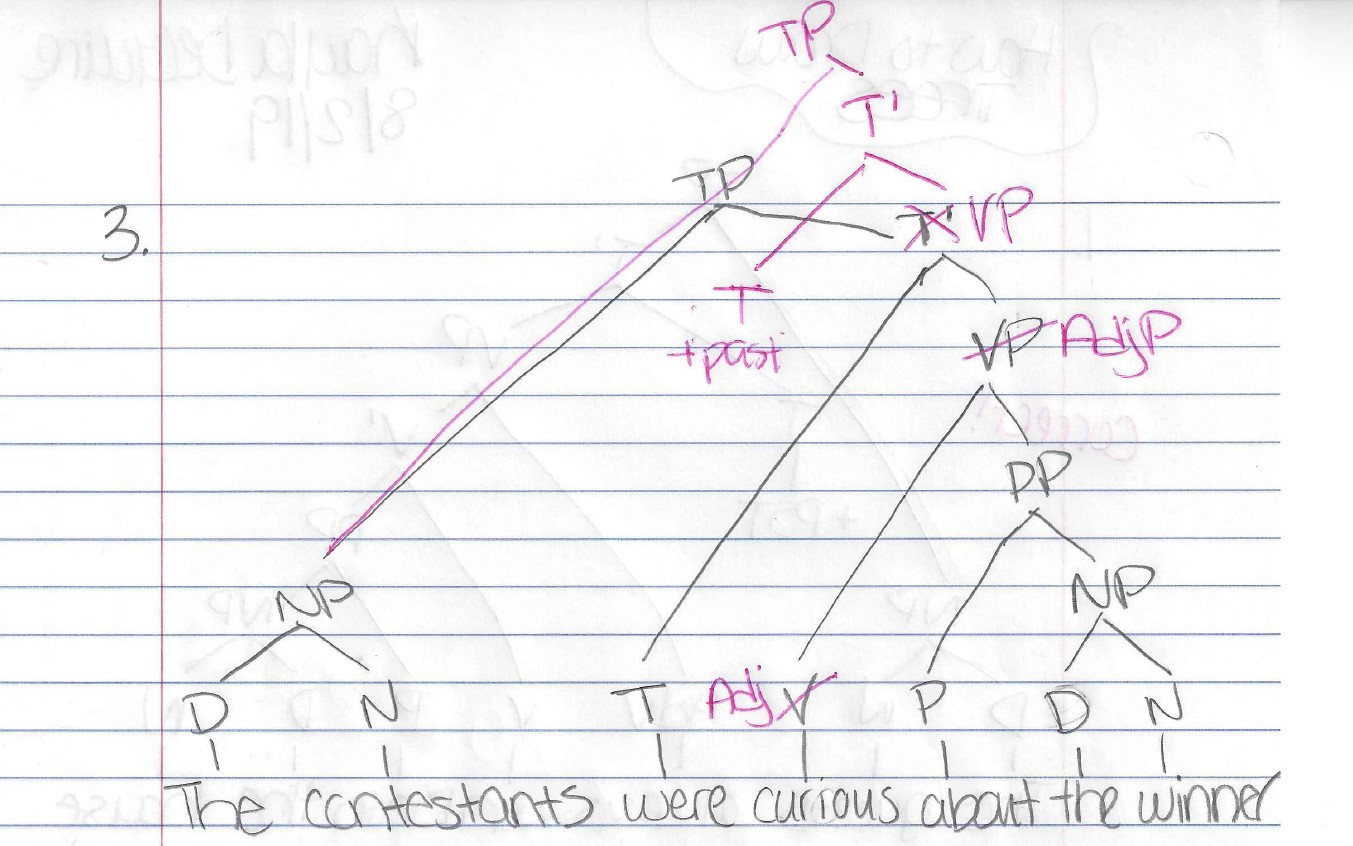 TP
T'
TP
3. T' VP
T
+past VP AdjP
PP
NP NP
D N T Adj V P D N
The contestants were curious about the winner